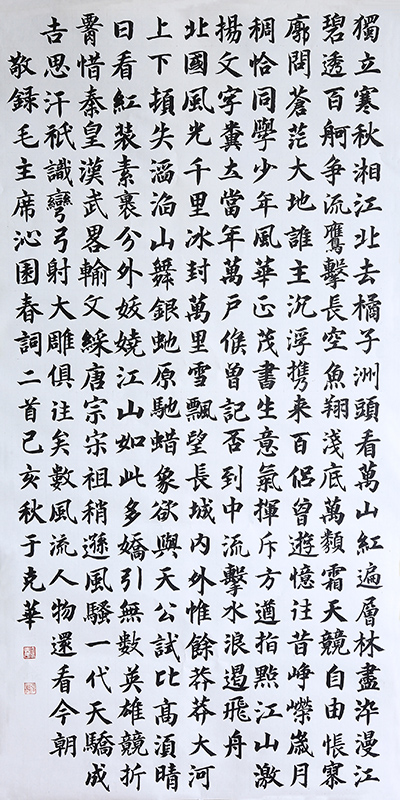 獨立寒秋湘江北去橘子洲頭看萬山紅遍層林盡染漫江
碧透百舸争流鷹擊長空魚翔淺底萬類霜天競自由悵寥
廓問蒼茫大地誰主沉浮携来百侣曾遊憶往昔崢嶸歲月
稠恰同學少年風華正茂書生意氣揮斥方遒指點江山激
揚文字糞土當年萬户侯曾記否到中流擊水浪遏飛舟
北國風光千里冰封萬里雪飄望長城内外惟餘莽莽大河
上下頓失滔滔山舞銀虵原馳蜡象欲與天公試比高湏晴
日看紅装素裹分外妖嬈江山如此多嬌引無數英雄競折
腰惜秦皇漢武畧輸文綵唐宗宋祖稍遜風騷一代天驕成
吉思汗祇識彎弓射大雕俱往矣數風流人物還看今朝
敬録毛主席沁園春詞二首己亥秋于克華